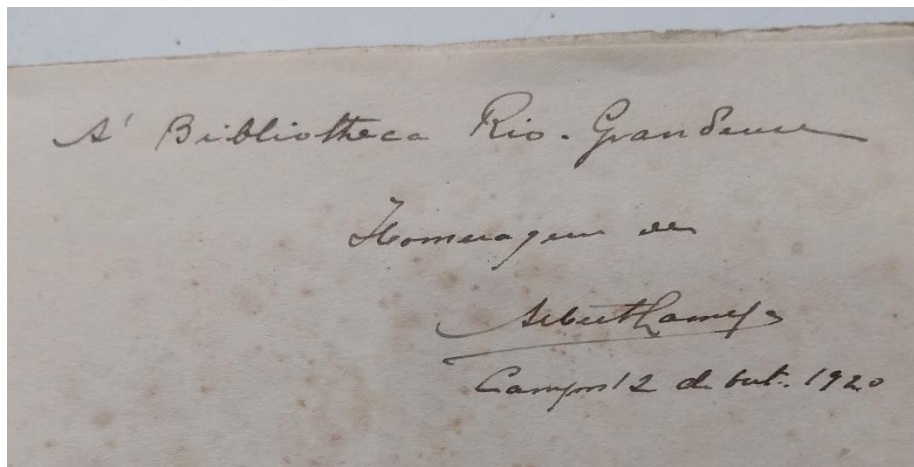 A' Bibliotheca Rio-Grandense
Homenagem de
Alberto Lamego
Campos 12 de Out. 1920